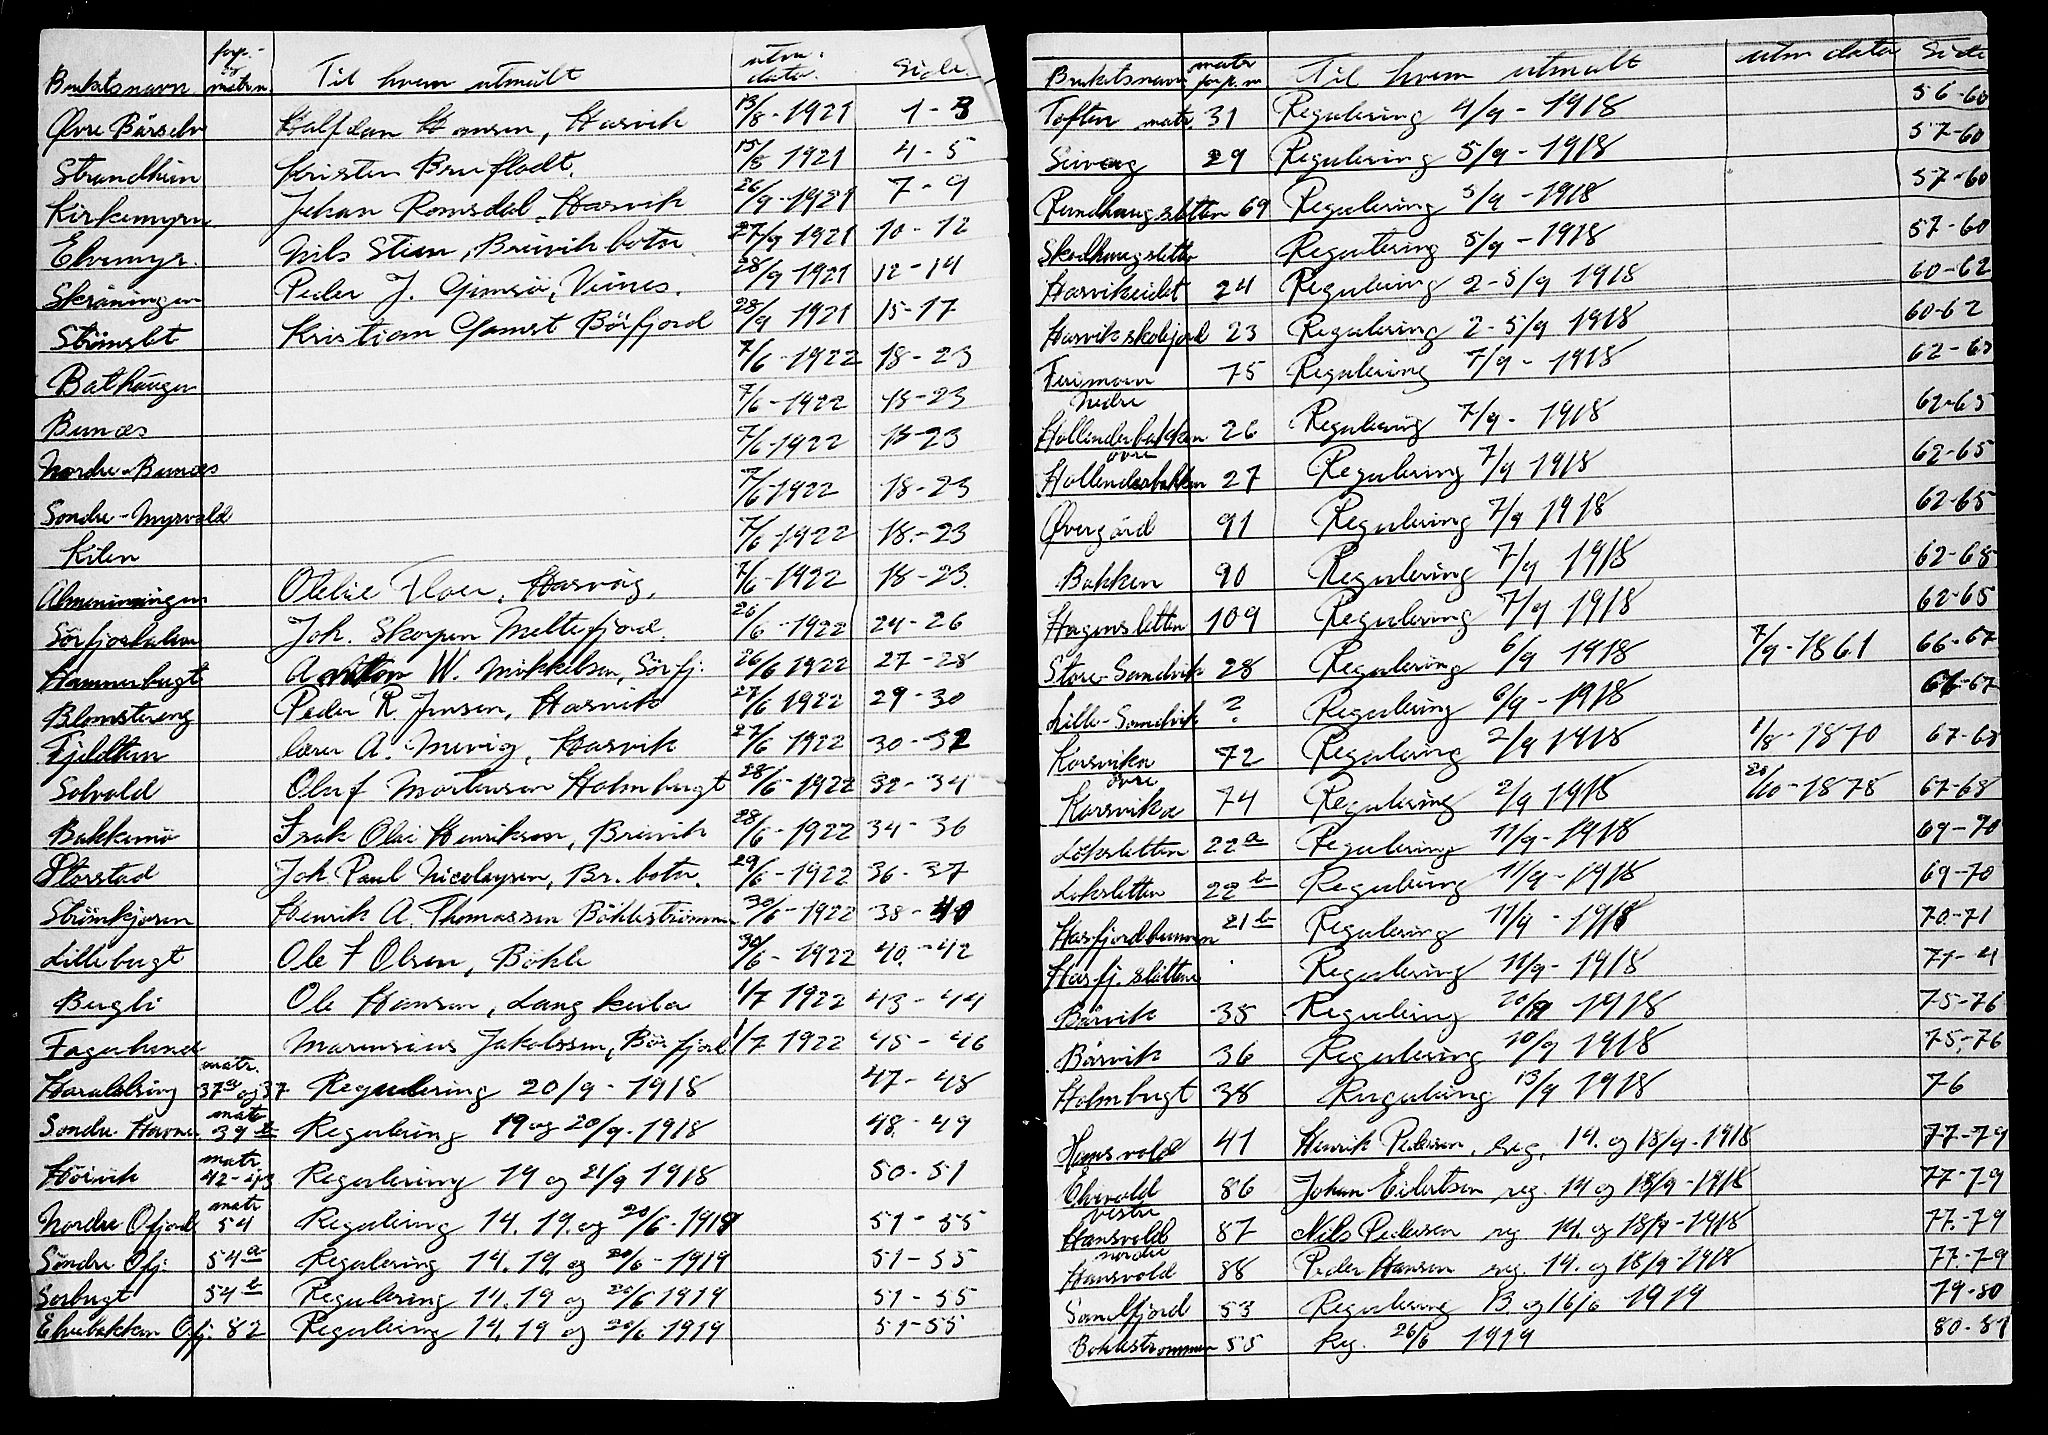 Bruksnavn forp.- og matr.n. Til hvem utmålt utm. dato. Side
Øvre Bårselv Halfdan Hansen, Hasvik 13/8-1921 1-3
Strandheim Kristen Brufladt. 15/8 1921 4-5
Kirkemyra Johan Romsdal, Hasvik 26/9-1921 7-9
Elvemyr. Nils Stien, Breivikbotn 27/9 1921 10-12
Skråningen Peder J. Gimsö, Veines. 28/9 1921 12-14
Strömslet Kristian Gamst Börfjord 28/9 1921 15-17
Bathaugen 7/6-1922 18-23
Bunæs 7/6-1922 18-23
Nordre-Bunæs 7/6-1922 18-23
Söndre-Myrvold 7/6-1922 18-23
Kilen 7/6-1922 18-23
Almenningen Oleie Floer, Hasvåg. 7/6-1922 18-23
Sörfjorhalsen Joh. Skorpen Meltefjord. 26/6-1922 24-26
Hammerbugt Anton W. Mikkelsen, Sörfj. 26/6 1922 27-28
Blomstereng Peder R. Jensen, Hasvik 27/6 1922 29-30
Fjeldheim lærer A. Mevig, Hasvik 27/6 1922 30-32
Solvold Oluf Mortensen Holmbugt 28/6-1922 32-34
Bakkemo Isak Olai Henriksen, Breivik 28/6-1922 34-36
Storstad Joh. Paul Nicolaysen, Br. botn. 29/6-1922 36-37
Strömkjosen Henrik A. Thomassen Böhleströmmen 30/6-1922 38-40
Lillebugt Ole F Olsen, Böhle 30/6-1922 40-42
Bergli Ole Hansen, Langkeila 1/7 1922 43-44
Fagerlund Marensius Jakobsen, Börfjord 1/7 1922 45-46
Haraldseng matr. 37a og 37 Regulering 20/9-1918 47-48
Söndre Havnen matr 39b Regulering 19 og 20/9-1918 48-49
Höivik matr 42-43 Regulering 19 og 21/9 1918 50-51
Nordre Ofjord matr 54 Regulering 14. 19. og 20/6-1919 51-55
Söndre Ofj. 54a Regulering 14. 19. og 20/6-1919 51-55
Sörbugt 54b Regulering 14. 19 og 20/6 1919 51-55
Elvebakken Ofj. 82 Regulering 14. 19 og 20/6 1919 51-55
Bruksnavn matr forp. n Til hvem utmålt utm dato Side
Toften matr. 31 Regulering 4/9-1918 56-60
Sirvaag 29 Regulering 5/9-1918 57-60
Rundhaugsletten 69 Regulering 5/9-1918 57-60
Skodhaugsletten Regulering 5/9-1918 57-60
Hasvikeidet 24 Regulering 2-5/9 1918 60-62
Hasvik skolejord 23 Regulering 2-5/9 1918 60-62
Furumoen 75 Regulering 7/9-1918 62-65
Nedre Hollenderbakken 26 Regulering 7/9-1918 62-65
övre Hollenderbakken 27 Regulering 7/9 1918 62-65
Övergård 91 Regulering 7/9 1918 62-65
Bakken 90 Regulering 7/9 1918 62-68
Hagensletten 109 Regulering 7/9 1918 62-65
Store-Sandvik 28 Regulering 6/9 1918 7/9-1861 66-67
Lille-Sandvik ? Regulering 6/9-1918 66-67
Korsvika 72 Regulering 2/9 1918 1/8-1870 67-68
övre Korsvika 74 Regulering 2/9 1918 20/10-1878 67-68
Löksletten 22a Regulering 11/9-1918 69-70
Löksletten 22b Regulering 11/9-1918 69-70
Hasfjordbunnen 21b Regulering 11/9-1918 70-71
Hasfj. sletten Regulering 11/9-1918 71-
Bårvik 35 Regulering 1918 75-76
Bårvik 36 Regulering 10/9 1918 75-76
Holmbugt 38 Regulering 13/9 1918 76
Hansvold 41 Henrik Pedersen, reg. 14. og 18/9-1918 77-79
Elvevold 86 Johan Eilertsen reg. 14 og 18/9-1918 77-79
vestre Hansvold 87 Nils Pedersen reg 14. og 18/9-1918 77-79
nordre Hansvold 88 Peder Hansen reg. 14. og 18/9-1918 77-79
Sandfjord 53 Regulering 13 og 16/6 1919 79-80
Bohleströmmen 55 Reg. 26/6 1919 80-81